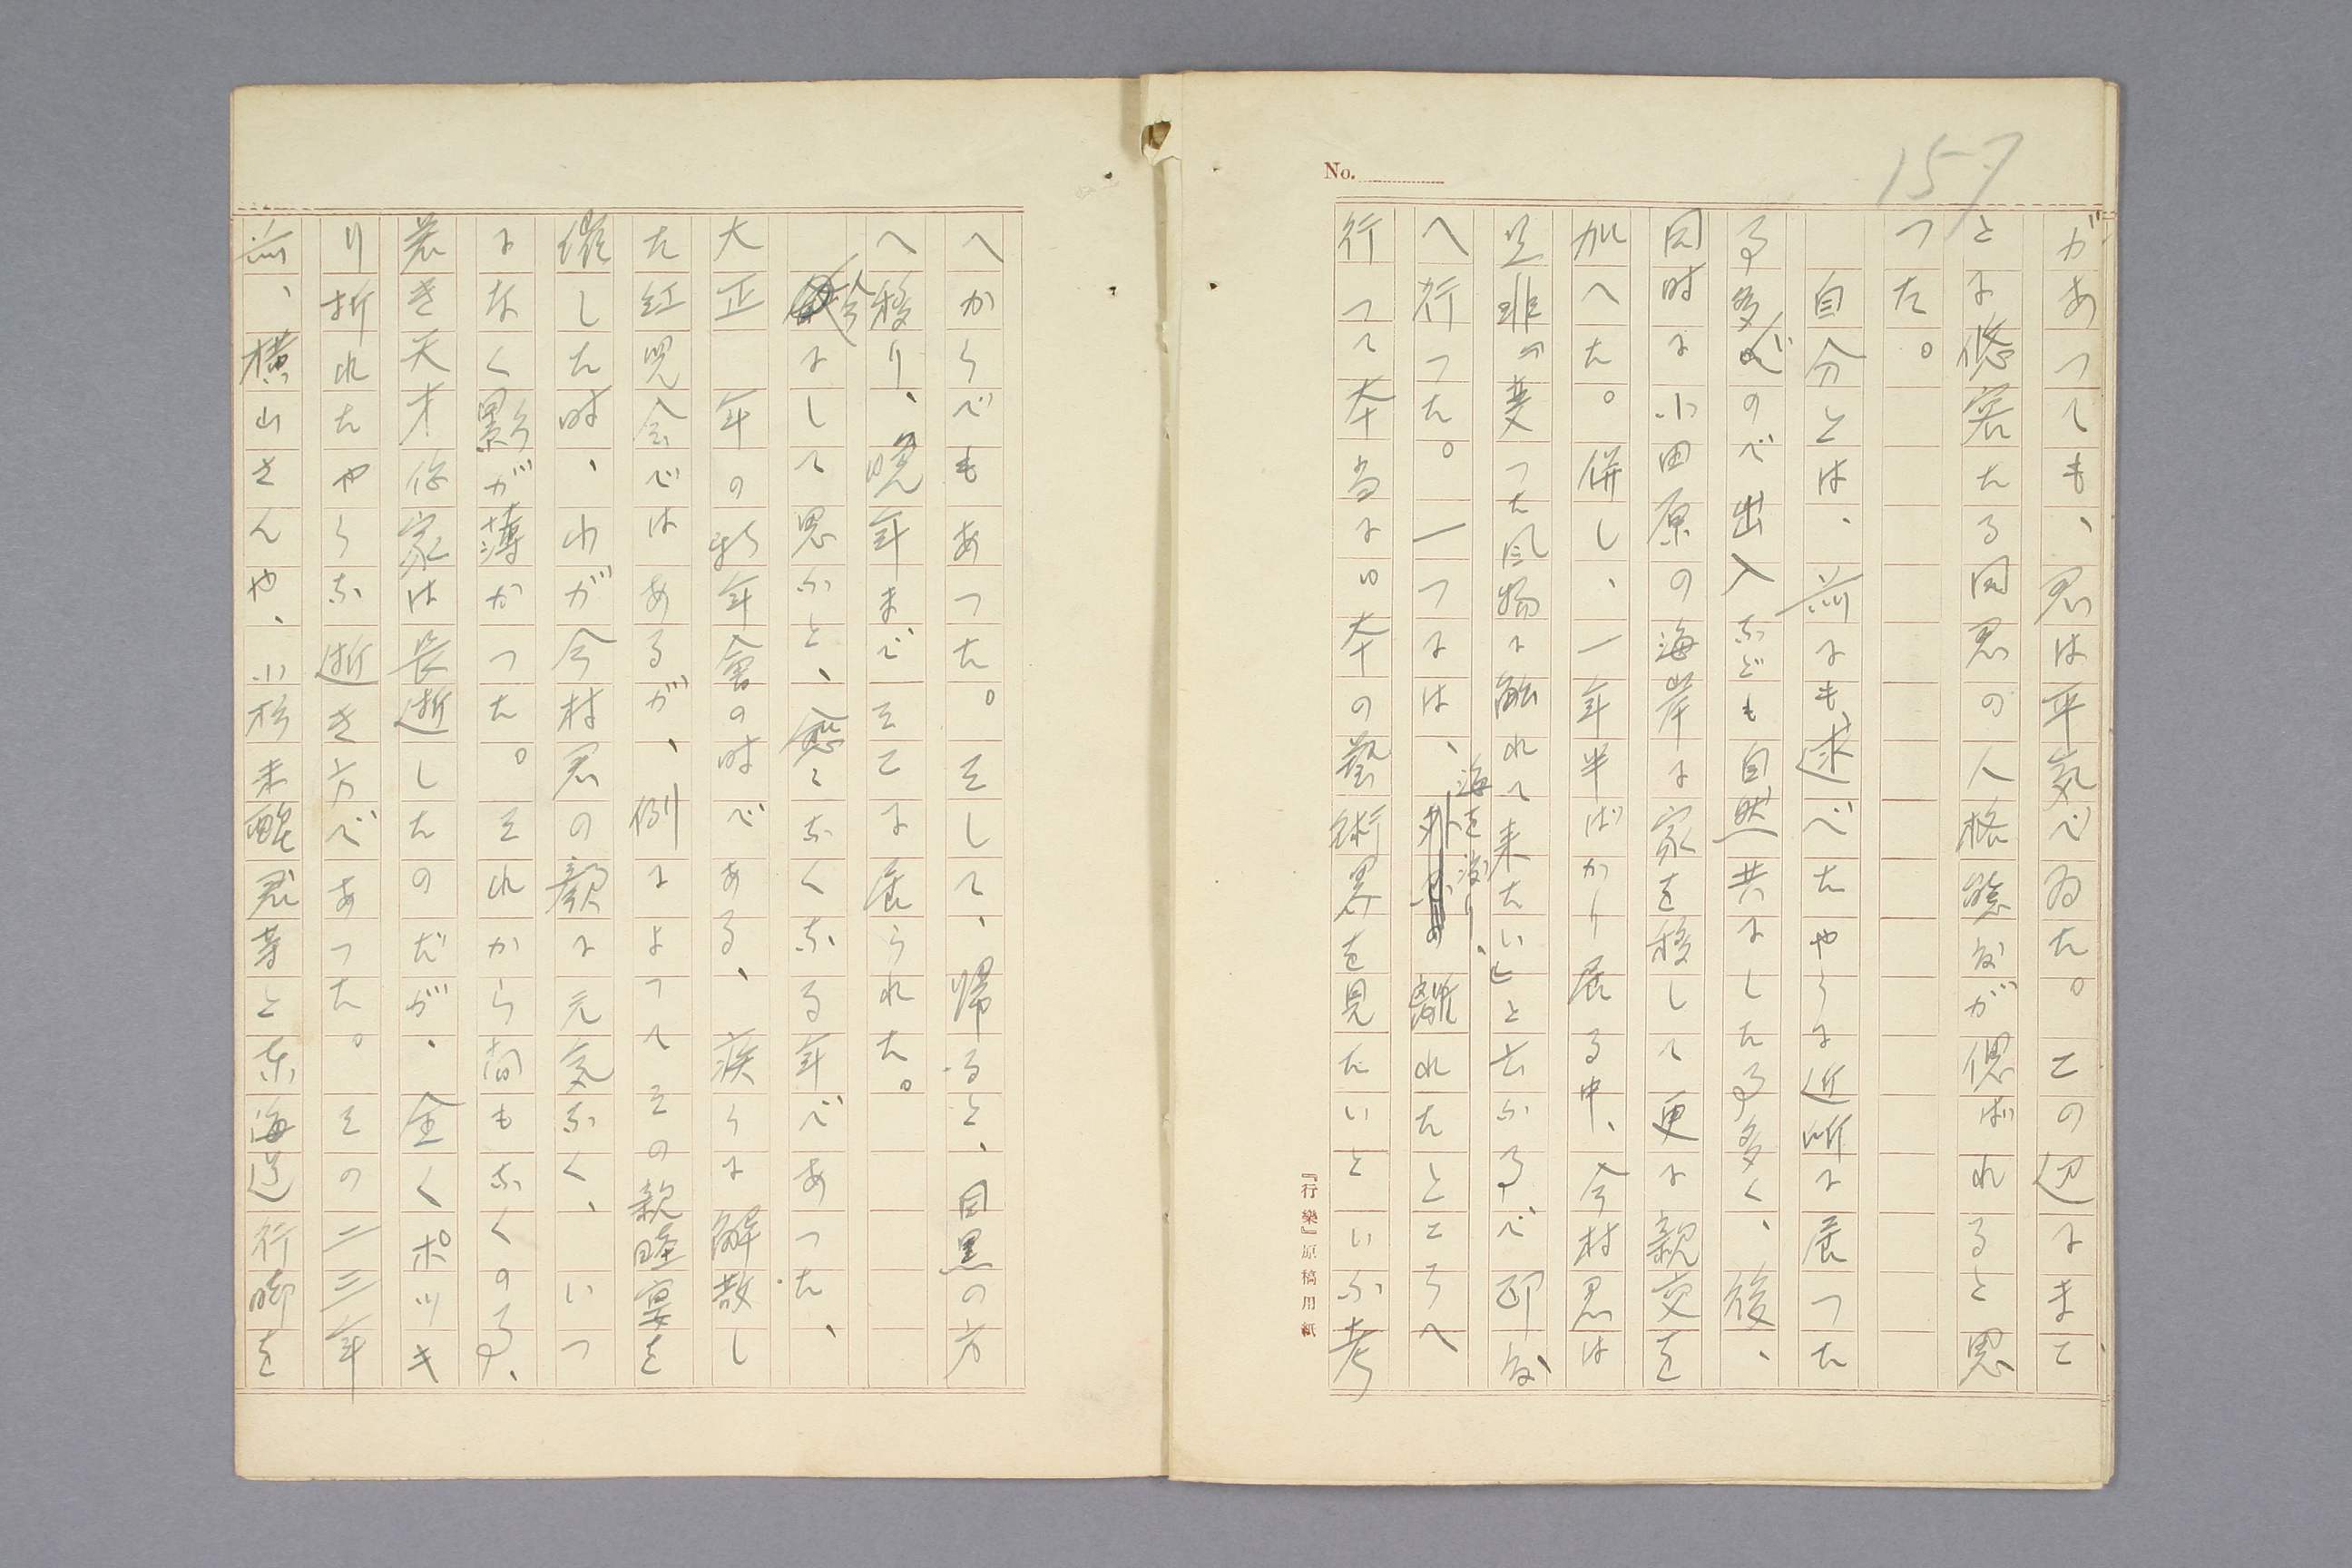 157
No.
があつても、君は平気でゐた。この辺にまこ
とに悠容たる同君の人格態度が偲ばれると思
つた。
自分とは、前にも述べたやうに近所に居つた
事多いので出入なども自然共にした事多く、後、
同時に小田原の海岸に家を移して更に親交を
加へた。併し、一年半ばかり居る中、今村君は
是非『変つた風物に触れて来たい』と云ふ事で印度
へ行つた。一つには、海を渡り、離れたところへ
行つて本当に日本の藝術界を見たいといふ考
『行樂』原稿用紙
へからでもあつた。そして、帰ると、目黒の方
へ移り、晩年までそこに居られた。
今にして思ふと、愈々なくなる年であつた、
大正 年の新年會の時である、疾うに解散し
た紅児会ではあるが、例によつてその親睦宴を
催した時、わが今村君の顔に元気なく、いつ
になく影が薄かつた。それから間もなくの事、
若き天才作家は長逝したのだが、全くポツキ
リ折れたやうな逝き方であつた。その二三年
前、横山さんや、小杉未醒君等と東海道行脚を